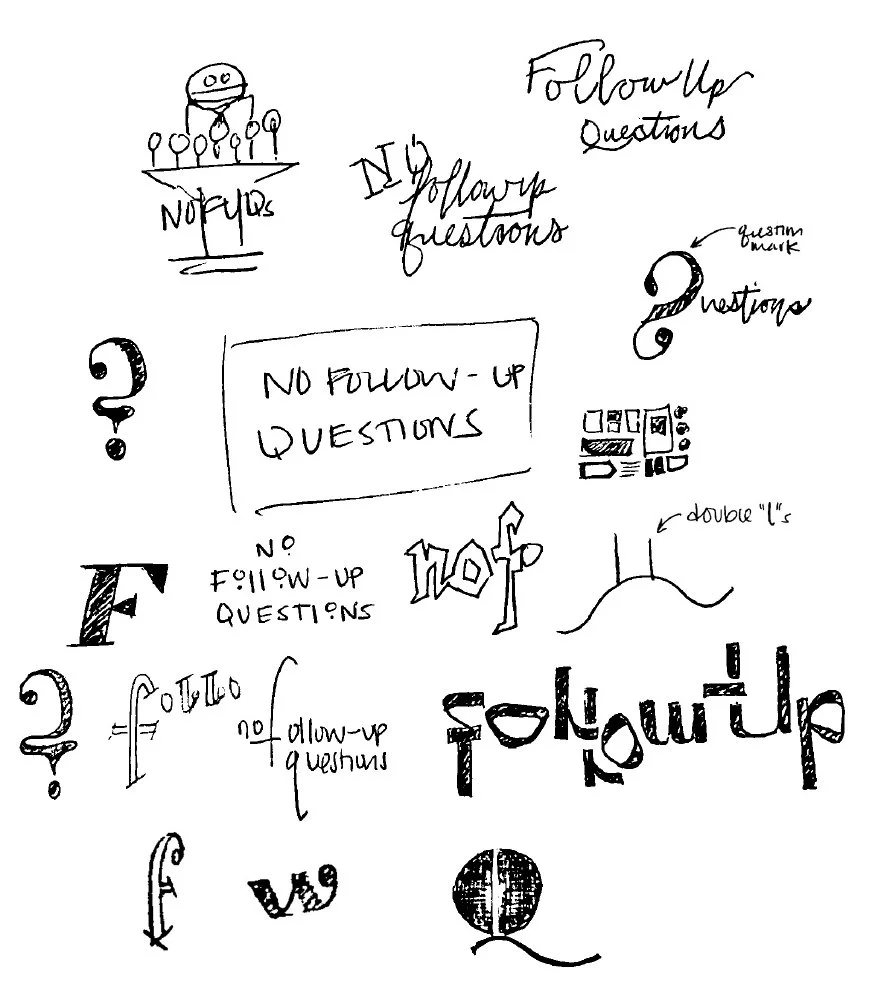 Follow Up
Questions
No
followup
questions
NO FYQs
question
mark
?uestions
NO FOLLOW-UP
QUESTIONS
double "l"s
F
NO
FOllOW-UP
QUESTIONS
nof
follo
no follow-up
questions
Follow-Up
f
w
Q